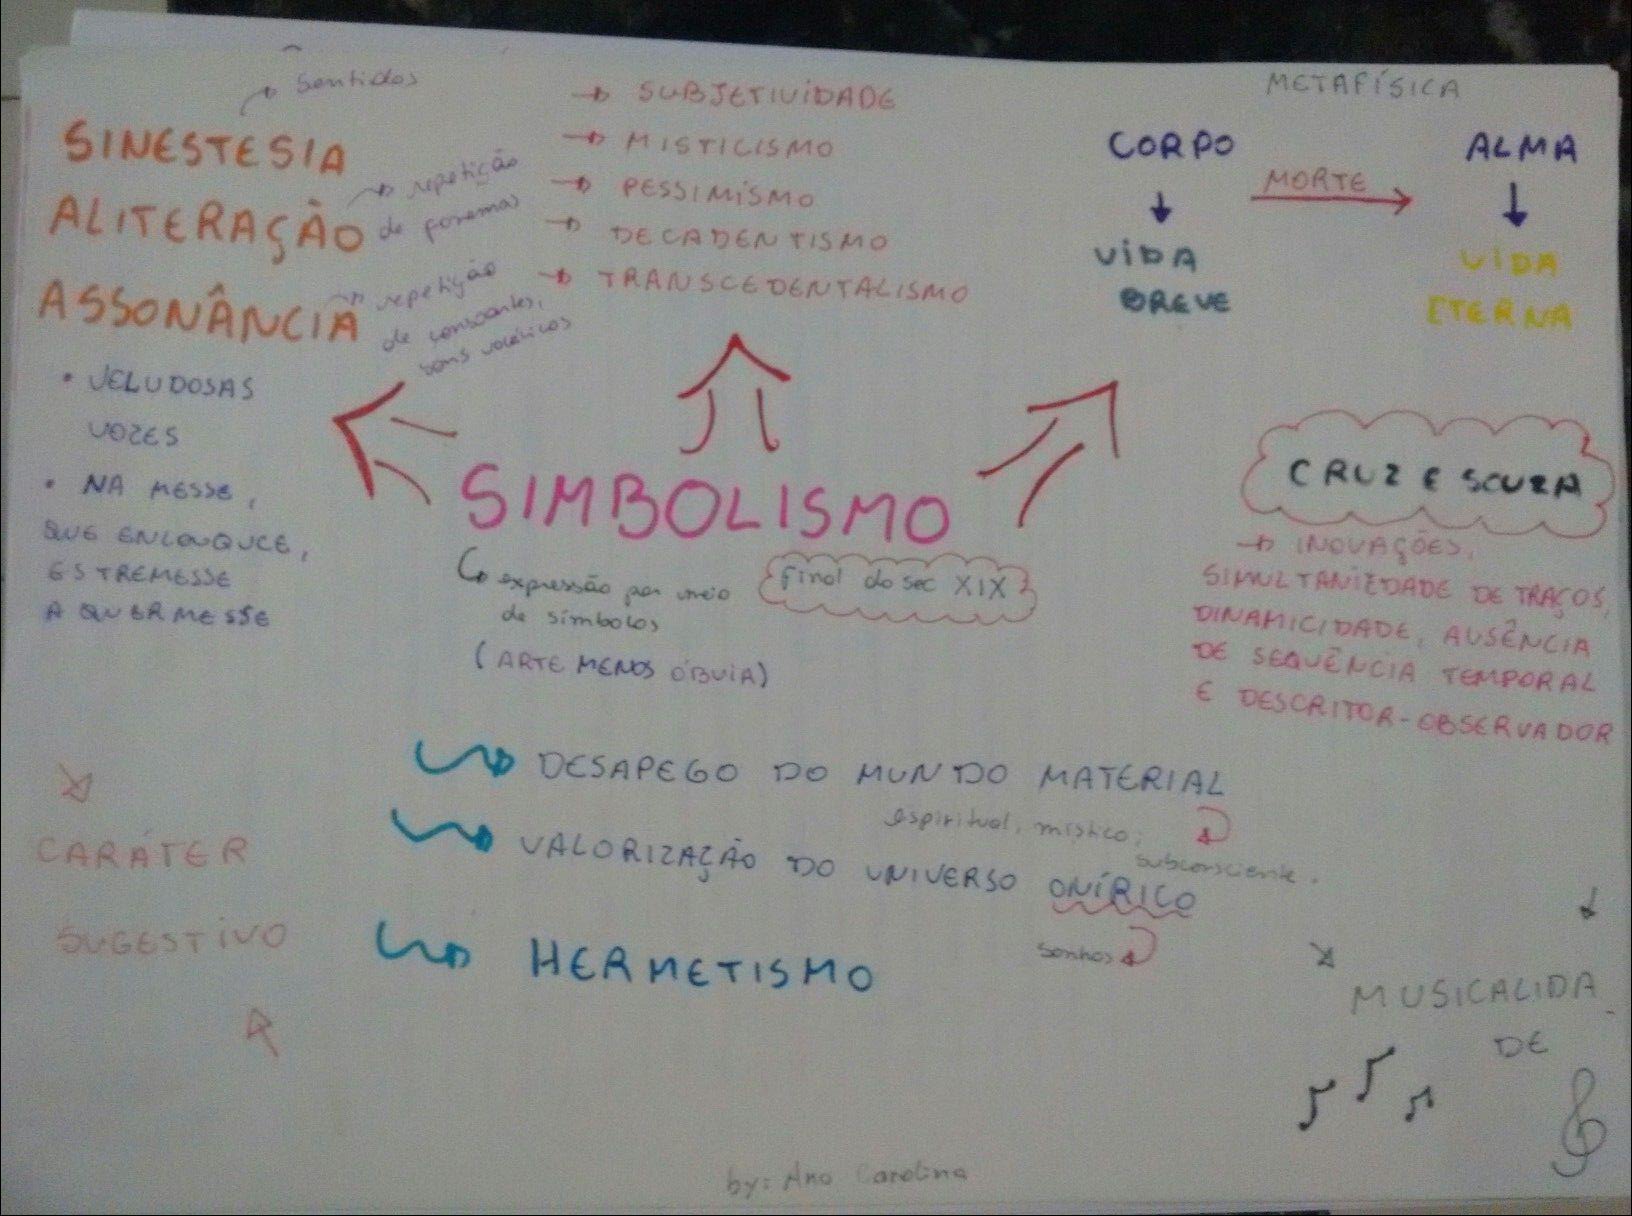 sentidos
SINESTESIA
ALITERAÇÃO
repetição
de fonemas
ASSONÂNCIA
repetição
de consoantes,
sons vocálicos
• VELUDOSAS
VOZES
• NA MESSE,
QUE ENLOUQUCE,
ESTREMESSE
A QUERMESSE
→ SUBJETIVIDADE
→ MISTICISMO
→ PESSIMISMO
→ DECADENTISMO
→ TRANSCEDENTALISMO
METAFÍSICA
CORPO
MORTE
ALMA
VIDA
BREVE
VIDA
ETERNA
SIMBOLISMO
expressão por meio
de símbolos
(ARTE MENOS ÓBVIA)
final do sec XIX
CRUZ E SOUZA
→ INOVAÇÕES,
SIMULTANIEDADE DE TRAÇOS,
DINAMICIDADE, AUSÊNCIA
DE SEQUÊNCIA TEMPORAL
E DESCRITOR-OBSERVADOR
DESAPEGO DO MUNDO MATERIAL
espiritual, místico,
subconsciente.
VALORIZAÇÃO DO UNIVERSO ONÍRICO
sonhos
HERMETISMO
CARÁTER
SUGESTIVO
MUSICALIDA
DE
by: Ana Carolina